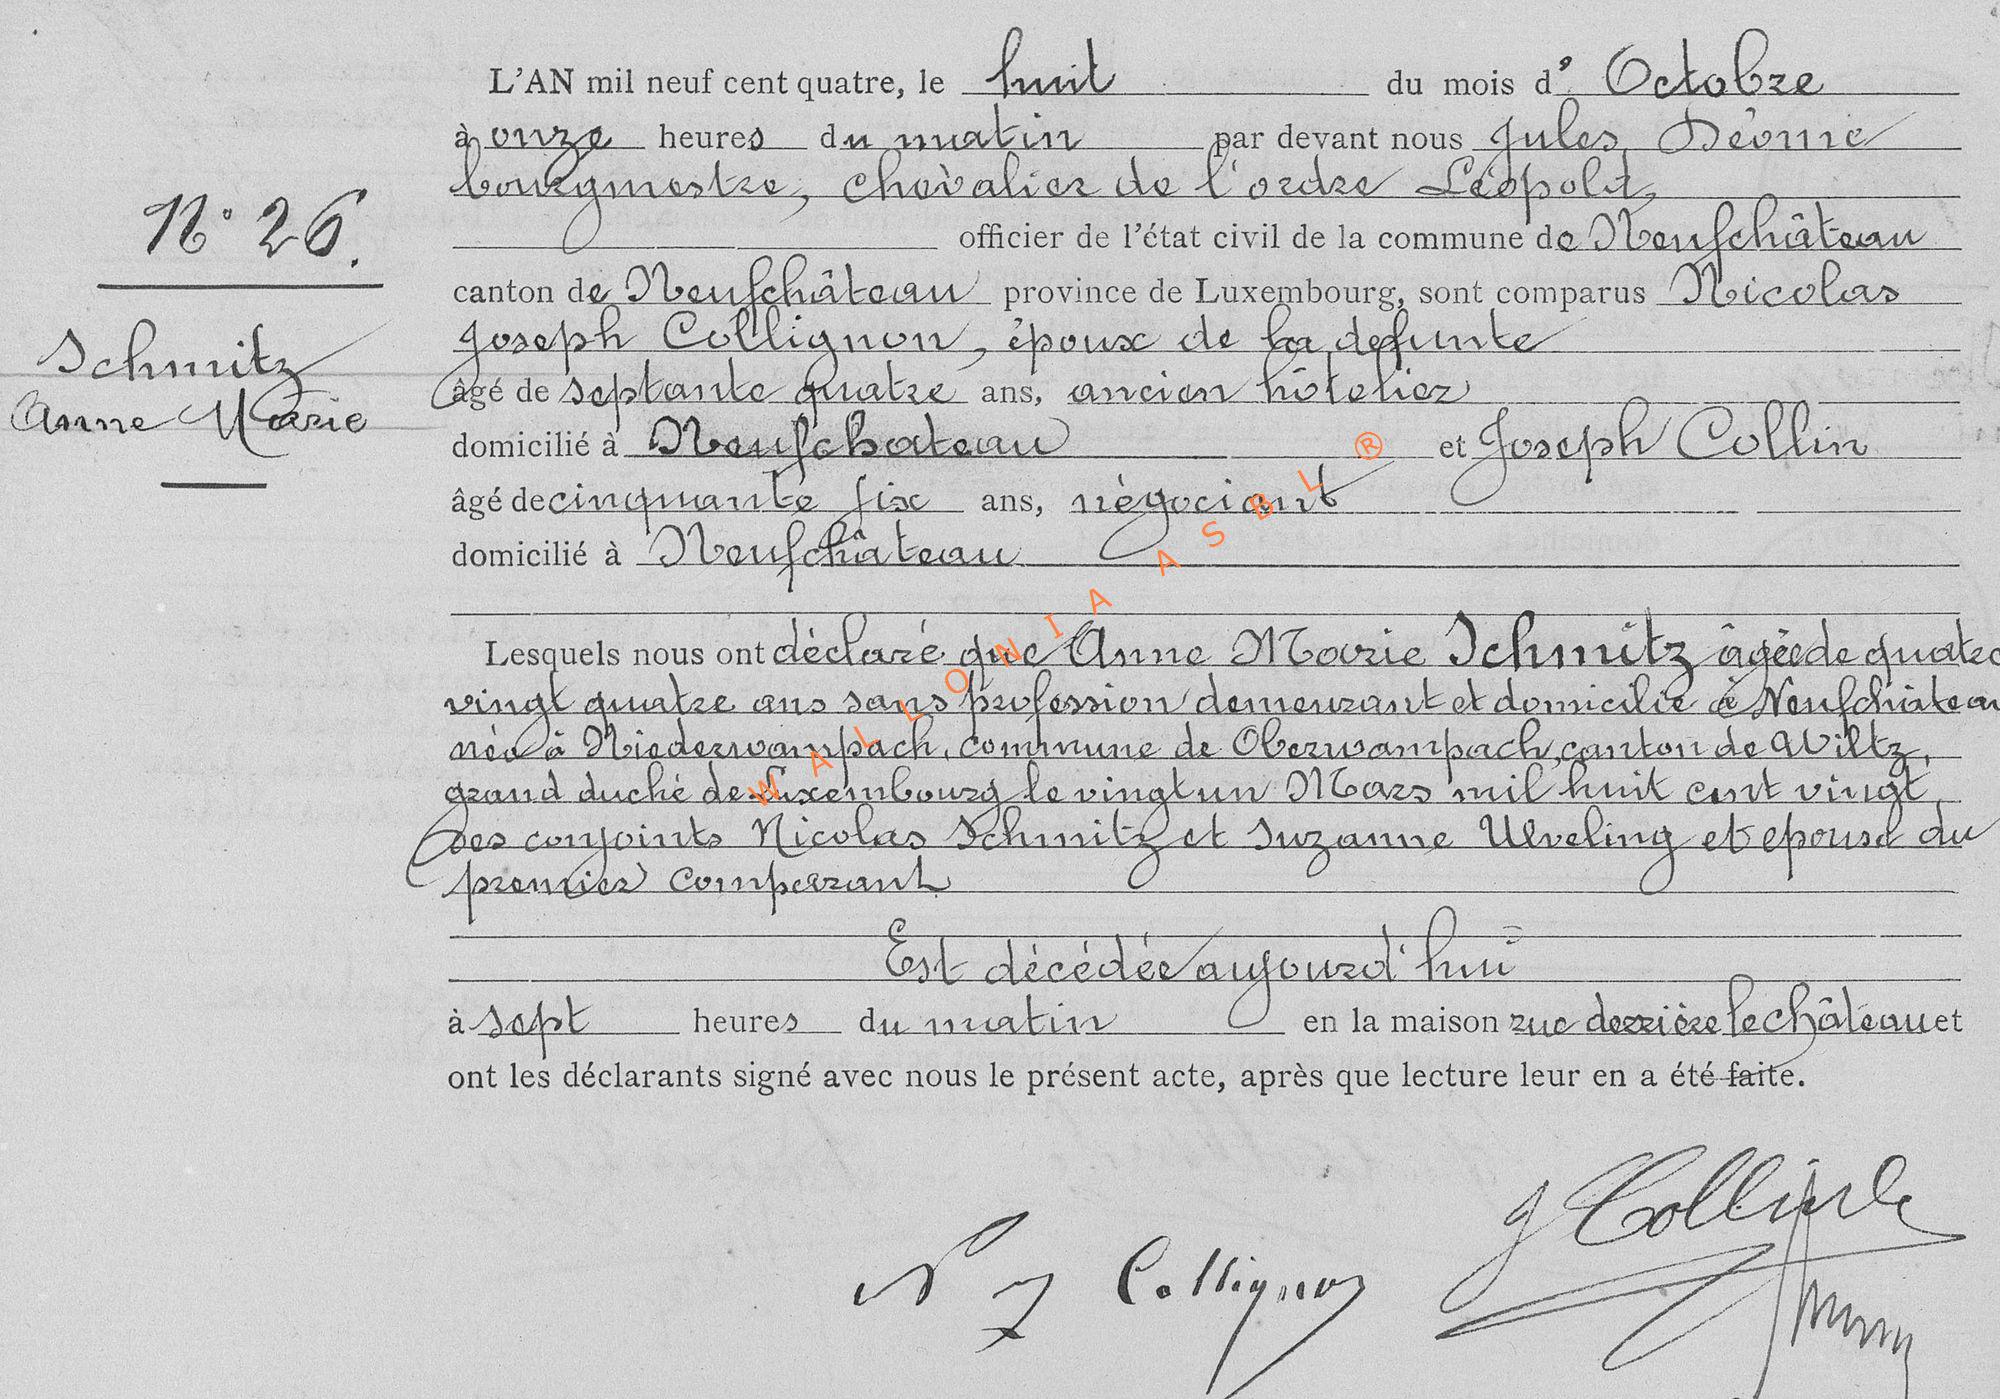 L'AN mil neuf cent quatre, le huit du mois d' Octobre
à onze heures du matin par devant nous Jules
bourgmestre, chevalier de l'ordre Léopold,
officier de l'état civil de la commune de Neufchâteau
canton de Neufchâteau province de Luxembourg, sont comparus Nicolas
Joseph Collignon, époux de la defunte
âgé de septante quatre ans, ancien hôtelier
domicilié à Neufchateau et Joseph Collin
âgé de cinquante six ans, négociant
domicilié à Neufchâteau
N° 26.
Schmitz
Anne Marie
Lesquels nous ont déclaré que Anne Marie Schmitz âgée de quatre
vingt quatre ans sans profession demeurant et domicilie à Neufchâteau
née à Niederwampach, commune de Oberwampach, canton de Wiltz,
grand duché de Luxembourg le vingt un Mars mil huit cent vingt
des conjoints Nicolas Schmitz et Suzanne Ulveling et epouse du
premier comparant
Est décédée aujourd'hui
à sept heures du matin en la maison rue derrière le château et
ont les déclarants signé avec nous le présent acte, après que lecture leur en a été faite.
J Collin
N J Collignon
WALLONIA ASBL ®